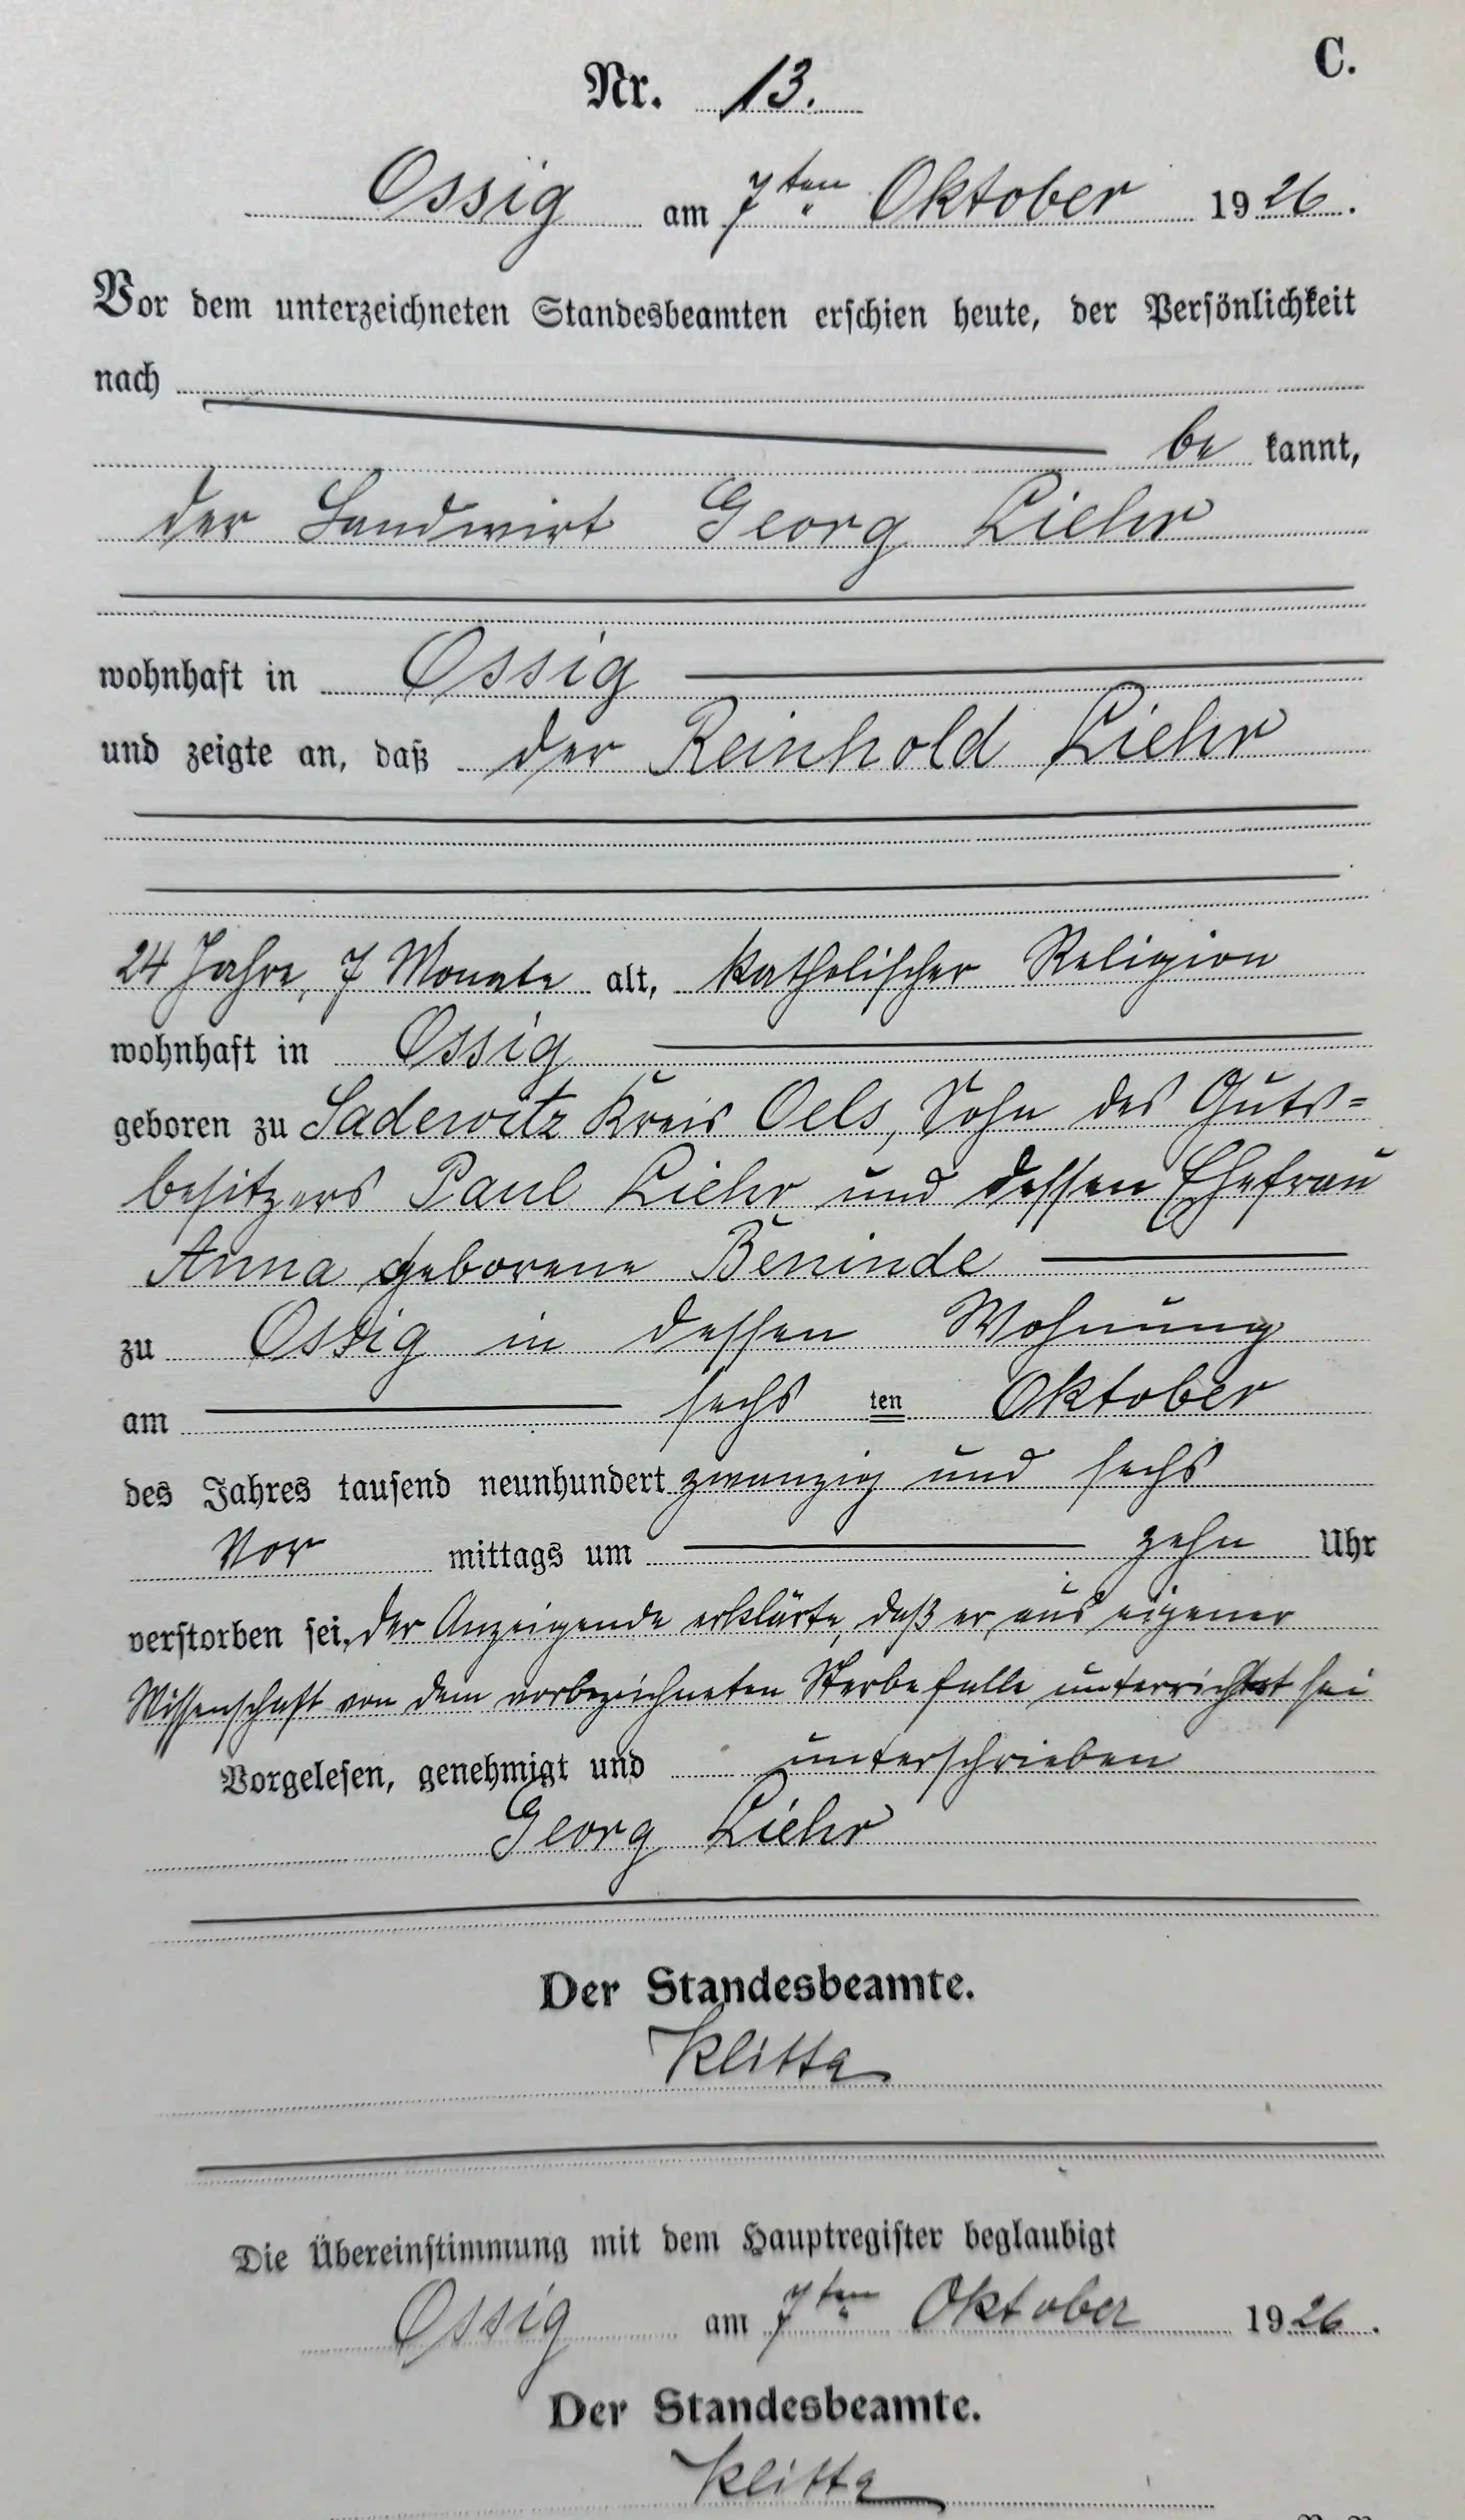 C.
Nr. 13.
Ossig am 7ten Oktober 1926.
Vor dem unterzeichneten Standesbeamten erschien heute, der Persönlichkeit
nach
be kannt,
der Landwirt Georg Liehr
wohnhaft in Ossig
und zeigte an, daß der Reinhold Liehr
24 Jahre, 7 Monate alt, katholischer Religion
wohnhaft in Ossig
geboren zu Sadewitz Kreis Oels, Sohn des Guts=
besitzers Paul Liehr und dessen Ehefrau
Anna geborene Beninde
zu Ossig in dessen Wohnung
am sechs ten Oktober
des Jahres tausend neunhundert zwanzig und sechs
Vor mittags um zehn Uhr
verstorben sei, der Anzeigende erklärte, daß er aus eigener
Wissenschaft von dem vorbezeichneten Sterbefalle unterrichtet sei
Vorgelesen, genehmigt und unterschrieben
Georg Liehr
Der Standesbeamte.
Klitta
Die Übereinstimmung mit dem Hauptregister beglaubigt
Ossig am 7ten Oktober 1926.
Der Standesbeamte.
Klitta